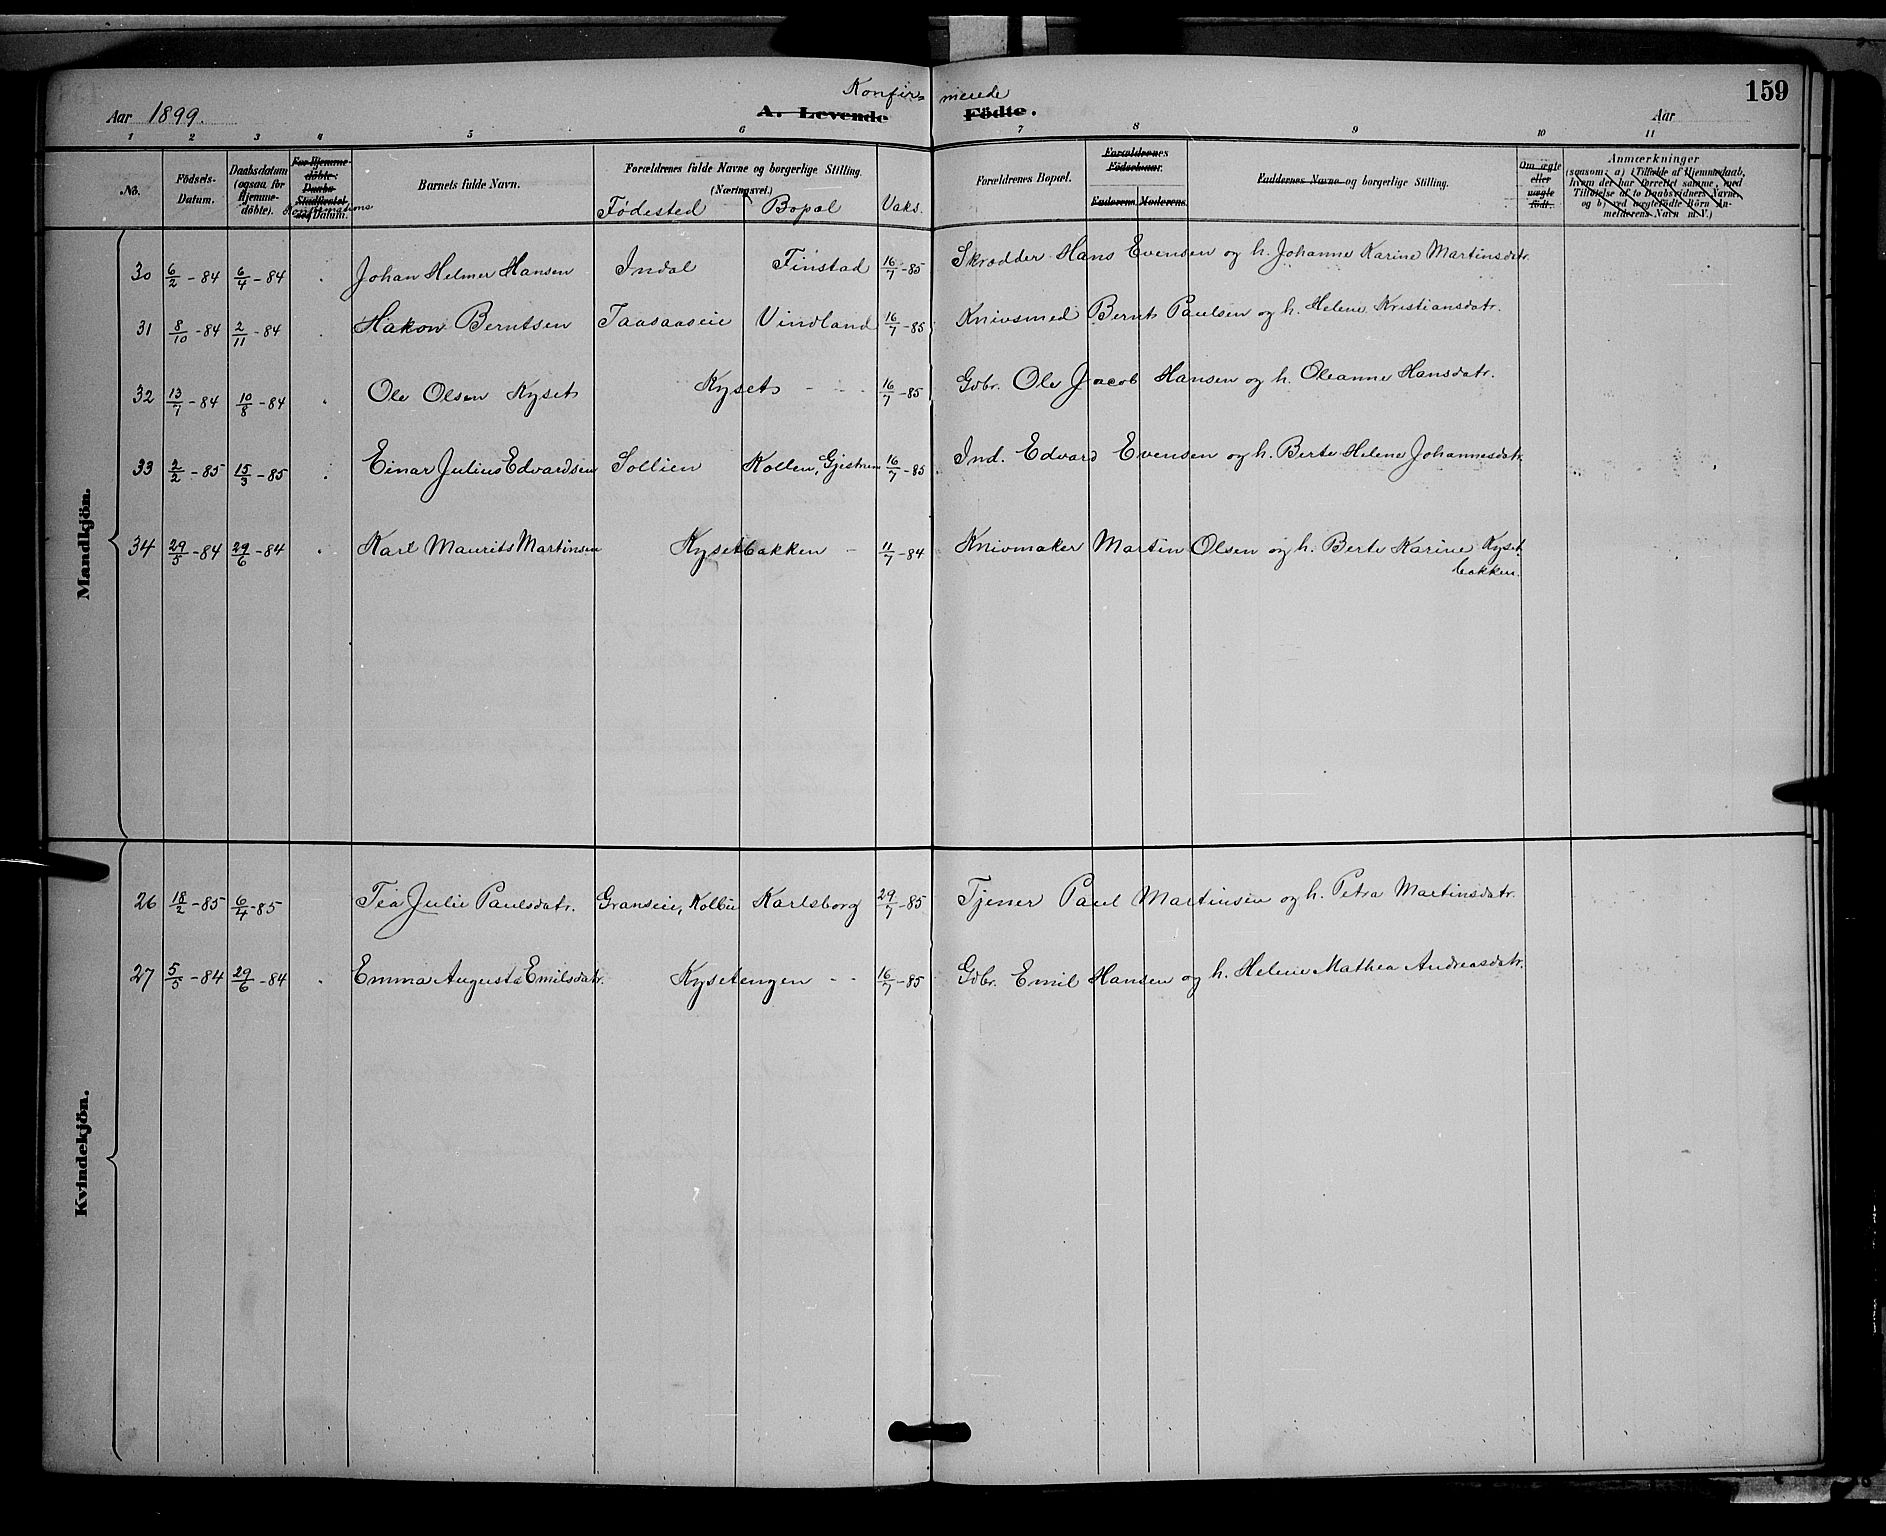 Konfirmerede
159
Aar 1899.
A. Levende Födte.
Aar
1 2 3 4 5 6 7 8 9 10 11
No.
Födsels-Datum.
Daabsdatum (ogsaa for Hjemme-döbte).
For Hjemme-döbte: Daabs Datum.
Konfirmations
Barnets fulde Navn.
Forældrenes fulde Navne og borgerlige Stilling. (Næringsvei.)
Födested Bopæl Vaks.
Forældrenes Bopæl.
Forældrenes Födselsaar.
Faderens Moderens
Faddernes Navne og borgerlige Stilling.
Om ægte eller uægte födt.
Anmærkninger
(saasom: a) i Tilfælde af Hjemmedaab, hvem der har forrettet samme, med Tilföielse af to Daabsvidners Navne, og b) ved uægtefödte Börn An-melderens Navn m. V.)
Mandkjön.
30 6/2-84 6/4-84 Johan Helmer Hansen Indal Finstad 16/7-85 Skrædder Hans Evensen og h. Johanne Karine Martinsdatr.
31 8/10-84 2/11-84 Hakon Berntsen Taasaaseie Vindland 16/7-85 Knivsmed Bernt Paulsen og h. Helene Kristiansdatr.
32 13/7-84 10/8-84 Ole Olsen Kyset Kyset - - 16/7-85 Gdbr. Ole Jacob Hansen og h. Oleanne Hansdatr.
33 2/2-85 15/3-85 Einar Julius Edvardsen Sollien Kollen, Gjestrum 16/7-85 Ind. Edvard Evensen og h. Berte Helene Johannesdatr.
34 29/5-84 29/6-84 Karl Maurits Martinsen Kysetbakken - 11/7-84 Knivmaker Martin Olsen og h. Berte Karine Kyset
bakken.
Kvindekjön.
26 18/2-85 6/4-85 Tea Julie Paulsdatr. Granseie, Kolbu Karlsborg 29/7-85 Tjener Paul Martinsen og h. Petra Martinsdatr.
27 5/5-84 29/6-84 Emma Augusta Emilsdatr. Kysetengen - - 16/7-85 Gdbr. Emil Hansen og h. Helene Mathea Andreasdatr.